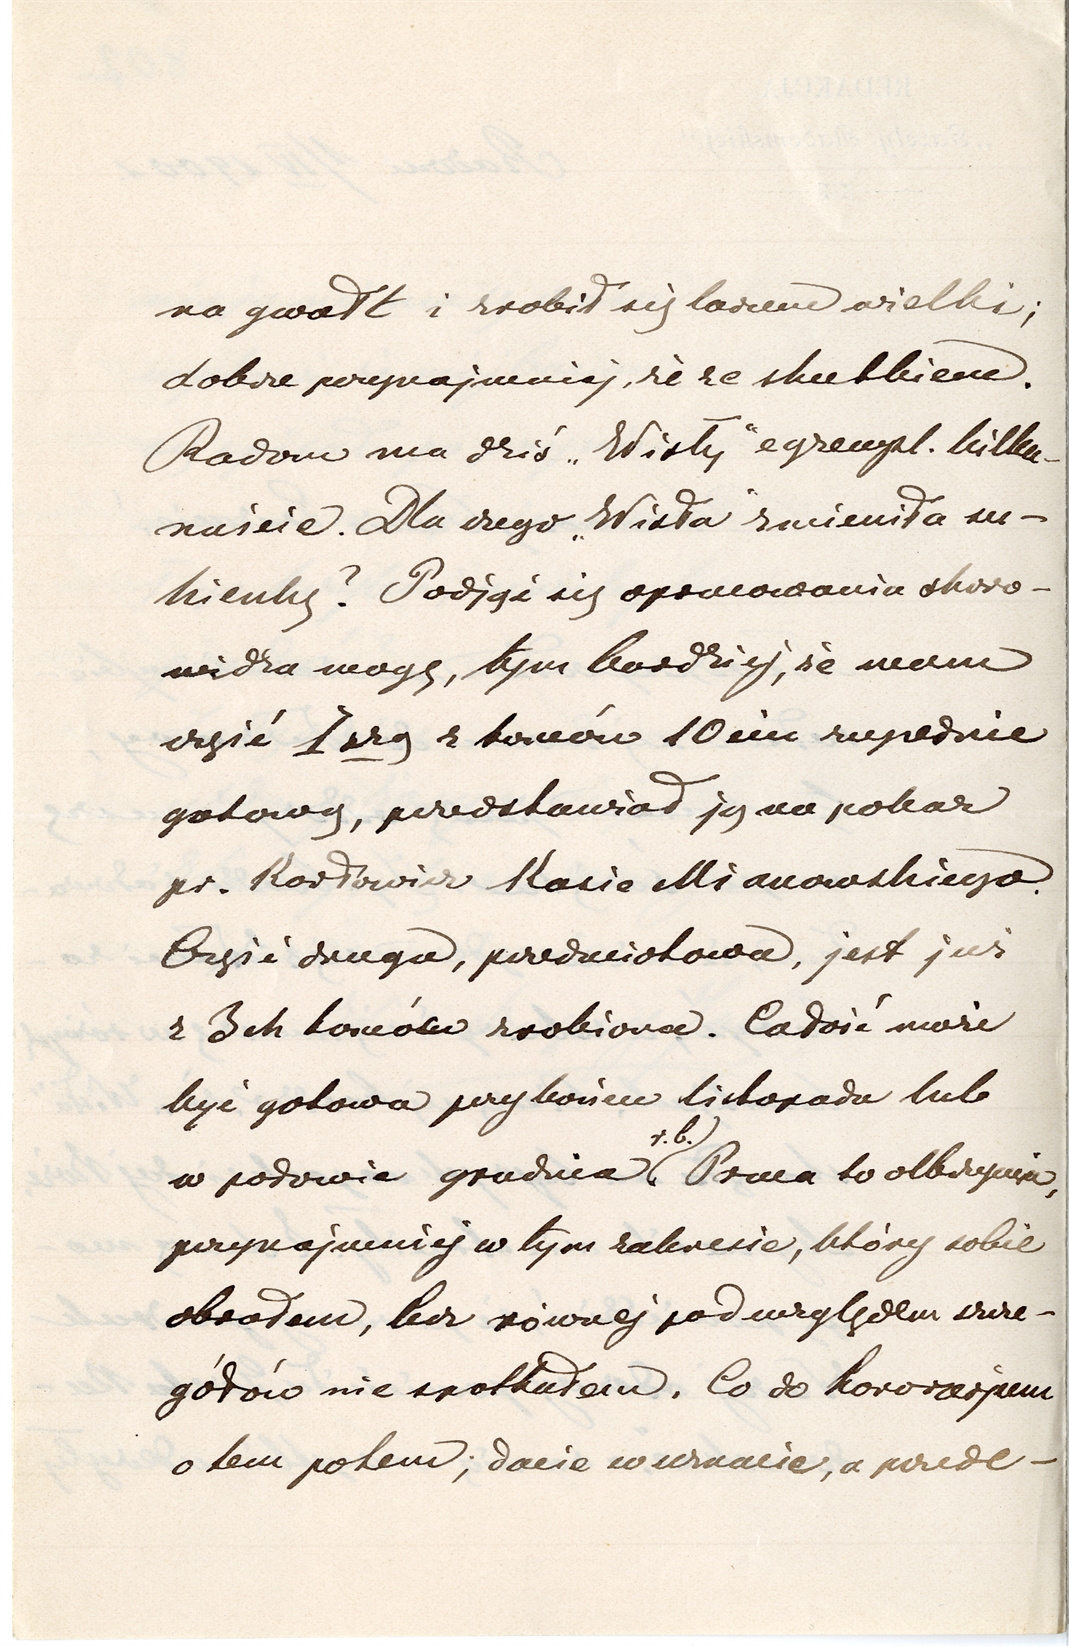 na gwałt i zrobił się larum wielki;
dobrze przynajmniej, że ze skutkiem.
Radom ma dziś „Wisły” egzempl. kilka-
naście. Dla czego „Wisła” zmieniła su-
kienkę? Podjąć się opracowania skoro-
widza mogę, tym bardziej, że mam
część I szą z tomów 10 ciu zupełnie
gotową, przedstawiał ją na pokaz
pr. Karłowicz Kasie Mianowskiego.
Część druga, przedmiotowa, jest już
z 3ch tomów zrobiona. Całość może
być gotowa przy końcu listopada lub
w połowie grudnia (r. b.) Praca to olbrzymia,
przynajmniej w tym zakresie, który sobie
obrałem, bez równej pod względem szcze-
gółów nie spotkałem. Co do
o tem potem; dacie wiecie, a przede-